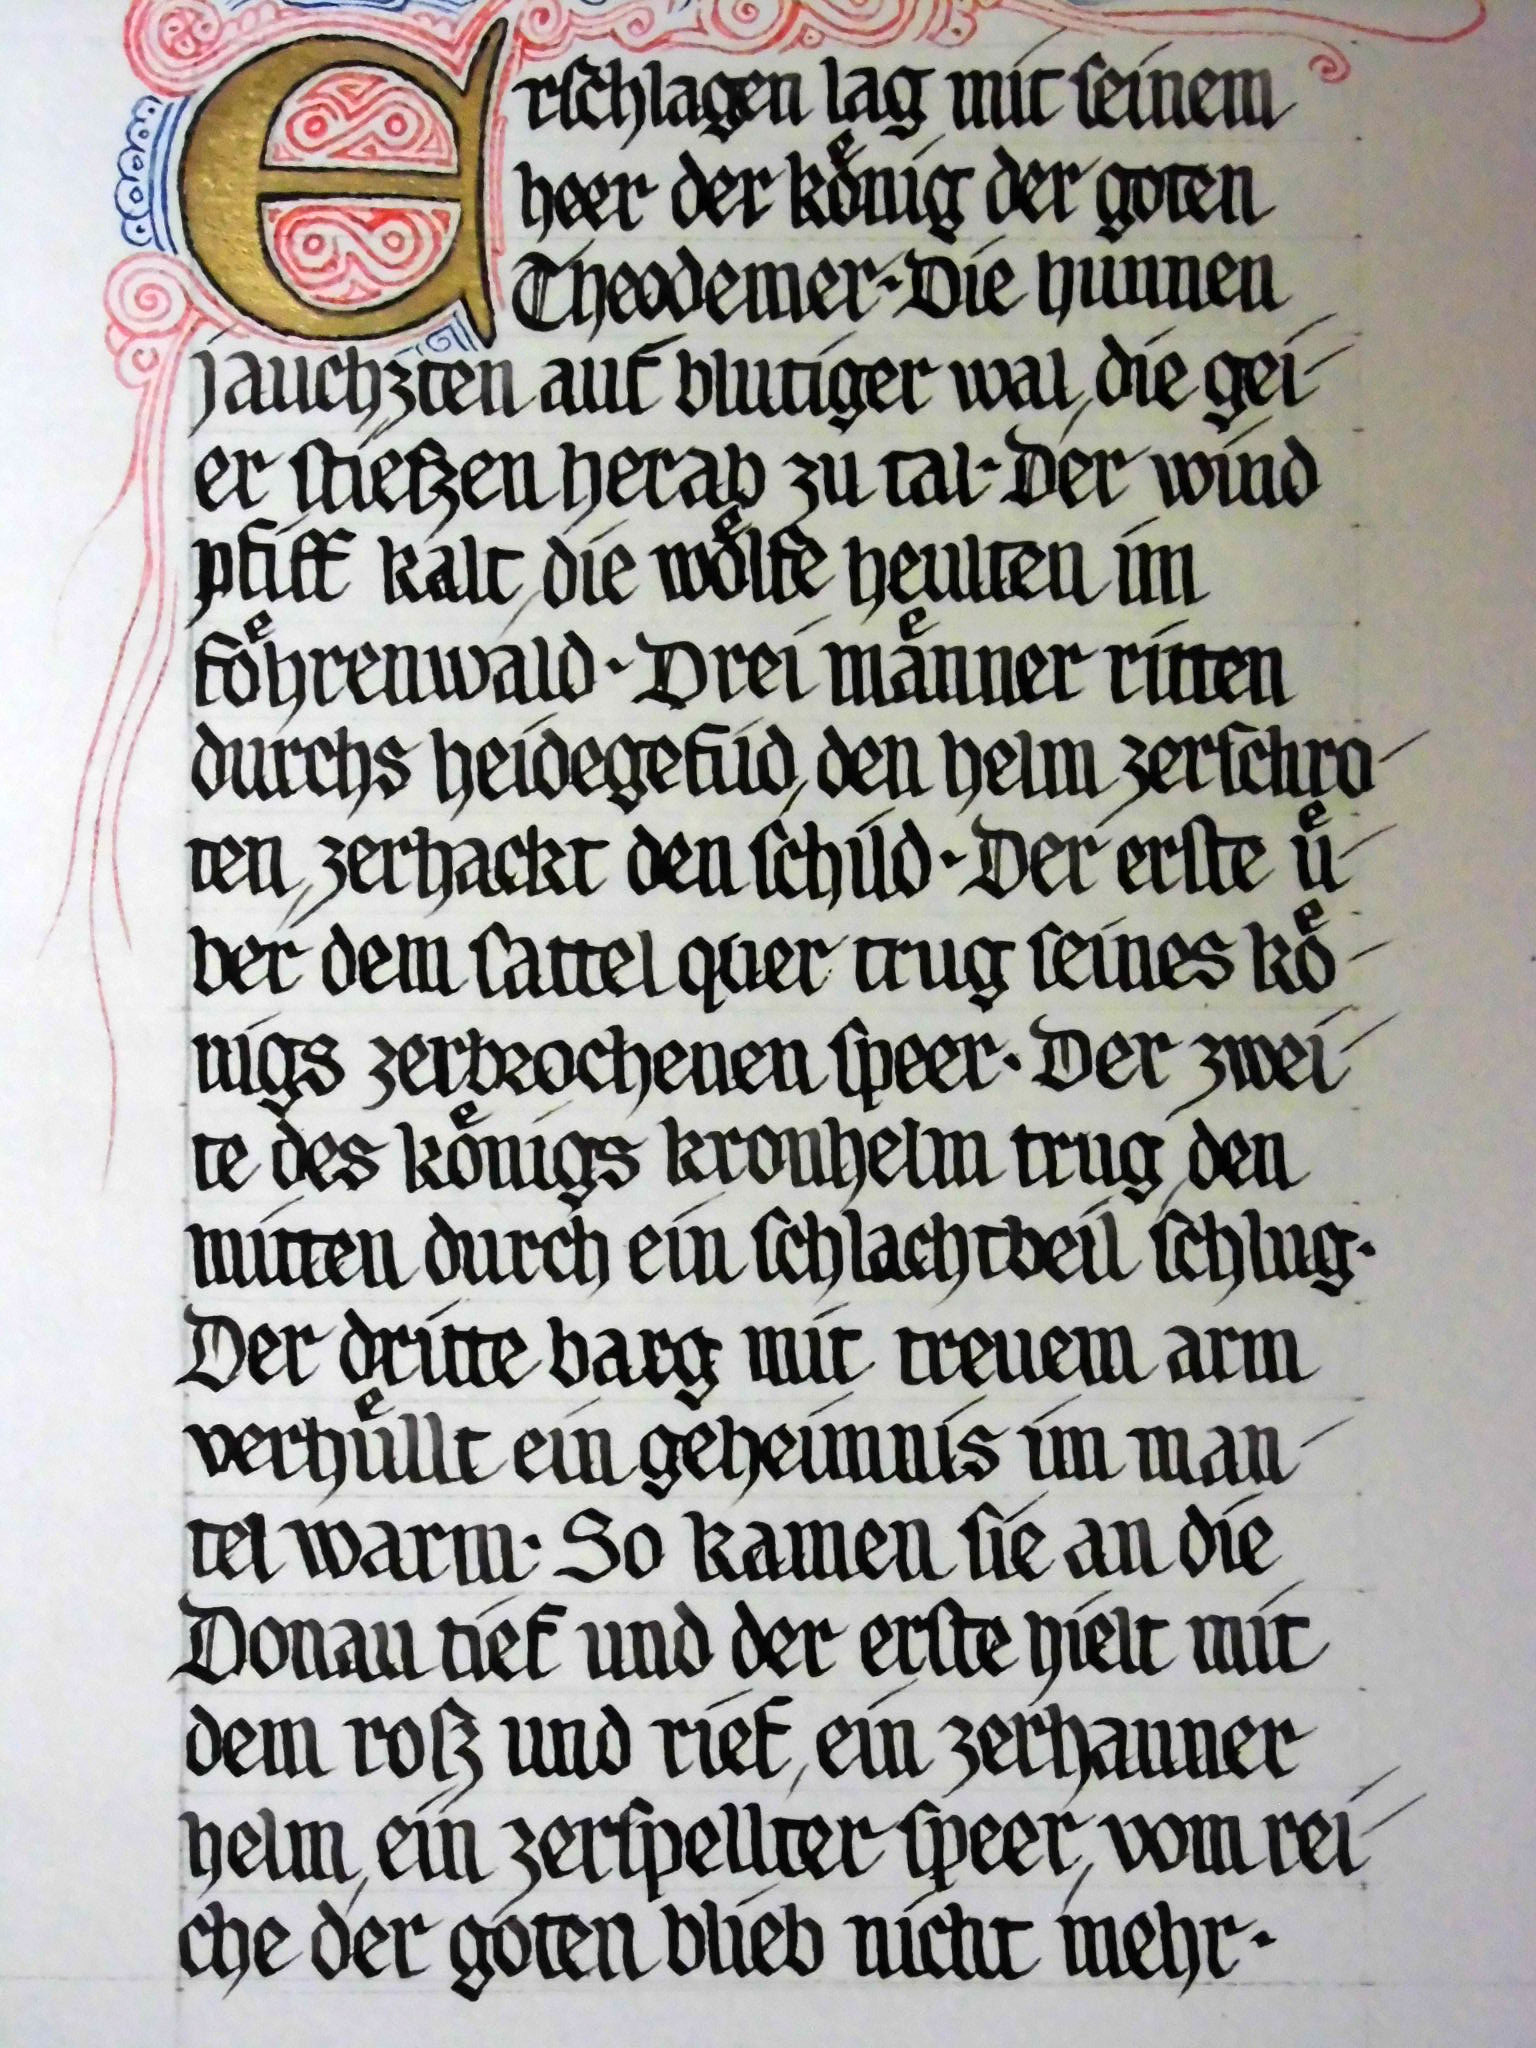 Erschlagen lag mit seinem
heer der koͤnig der goten
Theodemer·Die hunnen
jauchzten auf blutiger wal, die gei-
er stieszen herab zu tal·Der wind
pfiff kalt, die woͤlfe heulten im
foͤhrenwald·Drei maͤnner ritten
durchs heidegefild, den helm zerschro-
ten, zerhackt den schild·Der erste uͤ-
ber dem sattel quer trug seines koͤ-
nigs zerbrochenen speer·Der zwei-
te des koͤnigs kronhelm trug, den
mitten durch ein schlachtbeil schlug·
Der dritte barg mit treuem arm
verhuͤllt ein geheimnis im man-
tel warm·So kamen sie an die
Donau tief und der erste hielt mit
dem roß und rief, ein zerhauner
helm, ein zerspellter speer, vom rei-
che der goten blieb nicht mehr·